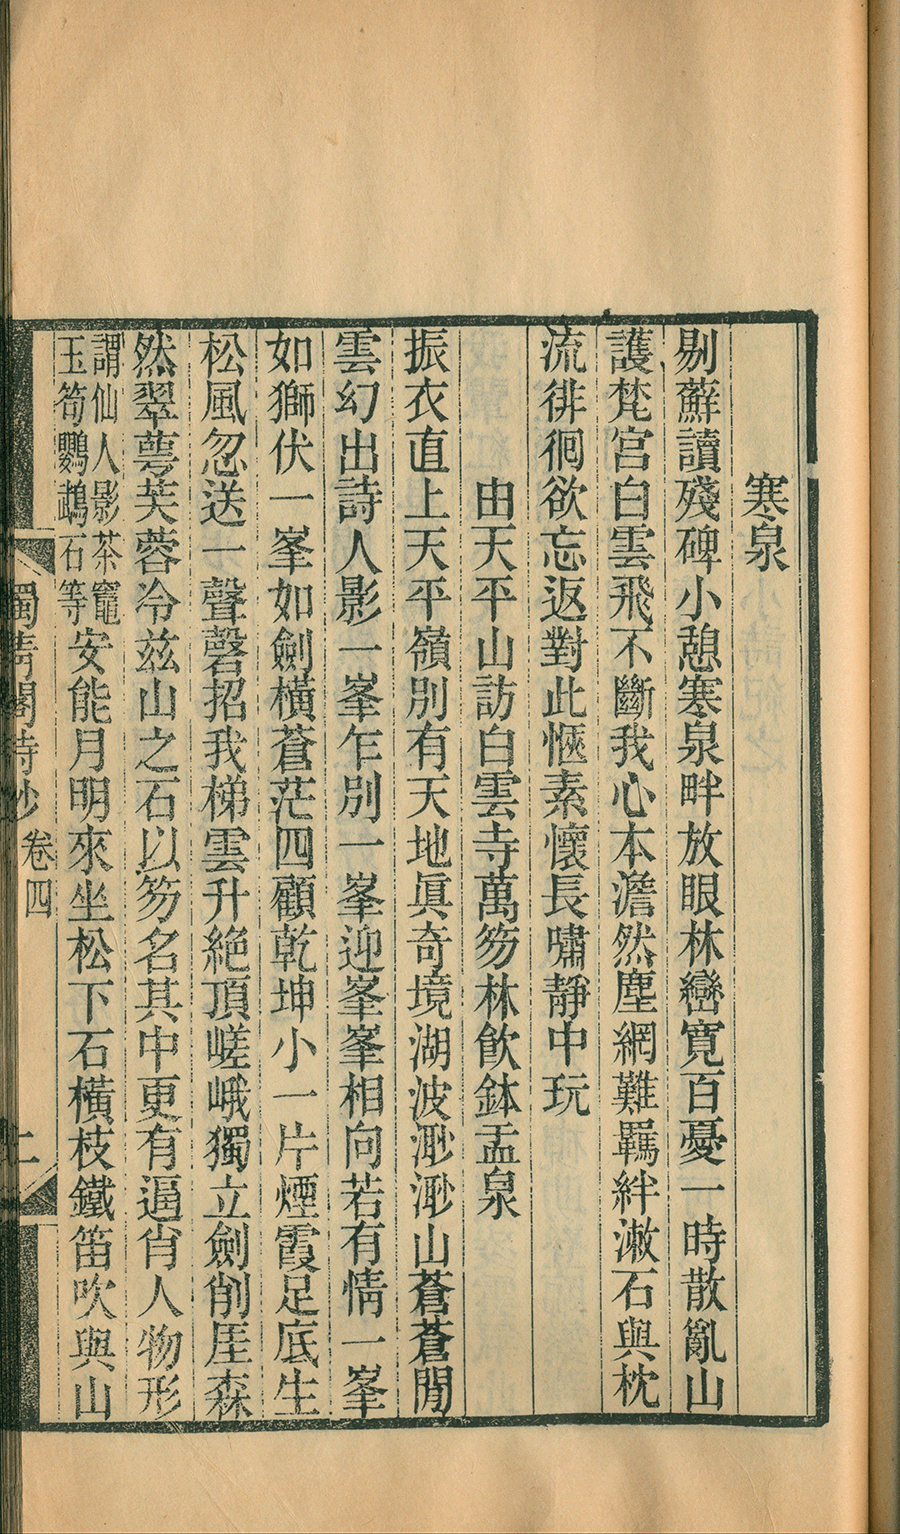 寒泉
剔蘚讀殘碑小憩寒泉畔放眼林巒寬百憂一時散亂山
護梵宮白雲飛不斷我心本澹然塵網難羈絆漱石與枕
流徘徊欲忘返對此愜素懷長嘯靜中玩
由天平山訪白雲寺萬笏林飲鉢盂泉
振衣直上天平嶺別有天地眞奇境湖波渺渺山蒼蒼閒
雲幻出詩人影一峯乍別一峯迎峯峯相向若有情一峯
如獅伏一峯如劍橫蒼茫四顧乾坤小一片煙霞足底生
松風忽送一聲磬招我梯雲升絶頂嵯峨獨立劍削厓森
然翠萼芙蓉冷茲山之石以笏名其中更有逼肖人物形
謂仙人影茶竈
玉筍鸚鵡石等
安能月明來坐松下石橫枝鐵笛吹與山
獨靑閣詩鈔 卷四 二